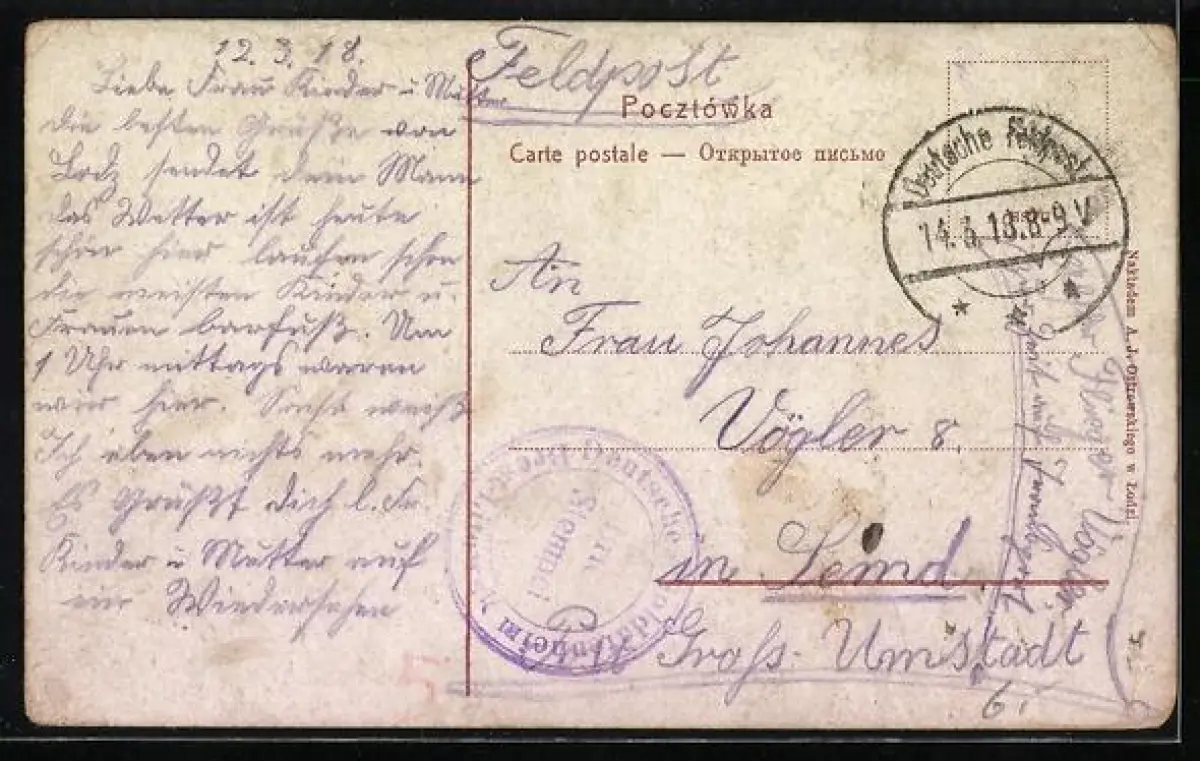 12.3.18.
Liebe Frau Kinder u Mutter
die besten Grüße von
Lodz sendet dein Mann
das Wetter ist heute
schön hier laufen schon
die meisten Kinder u.
Frauen barfuß. Um
1 Uhr mittags waren
wir hier. Sonst weiß
Ich eben nichts mehr.
Es Grüßt Dich l. Fr
Kinder u Mutter auf
ein Wiedersehen
Feldpost
Pocztówka
Carte postale — Открытое письмо
Deutsche Feldpost
14.3.18.8-9 V
An
Frau Johannes
Vögler 8.
in Semd.
Groß-Umstadt
6.
Deutsche Soldatenheim
Stempel
Vögler
Nakładem A. J. Ostrowskiego w Łodzi.